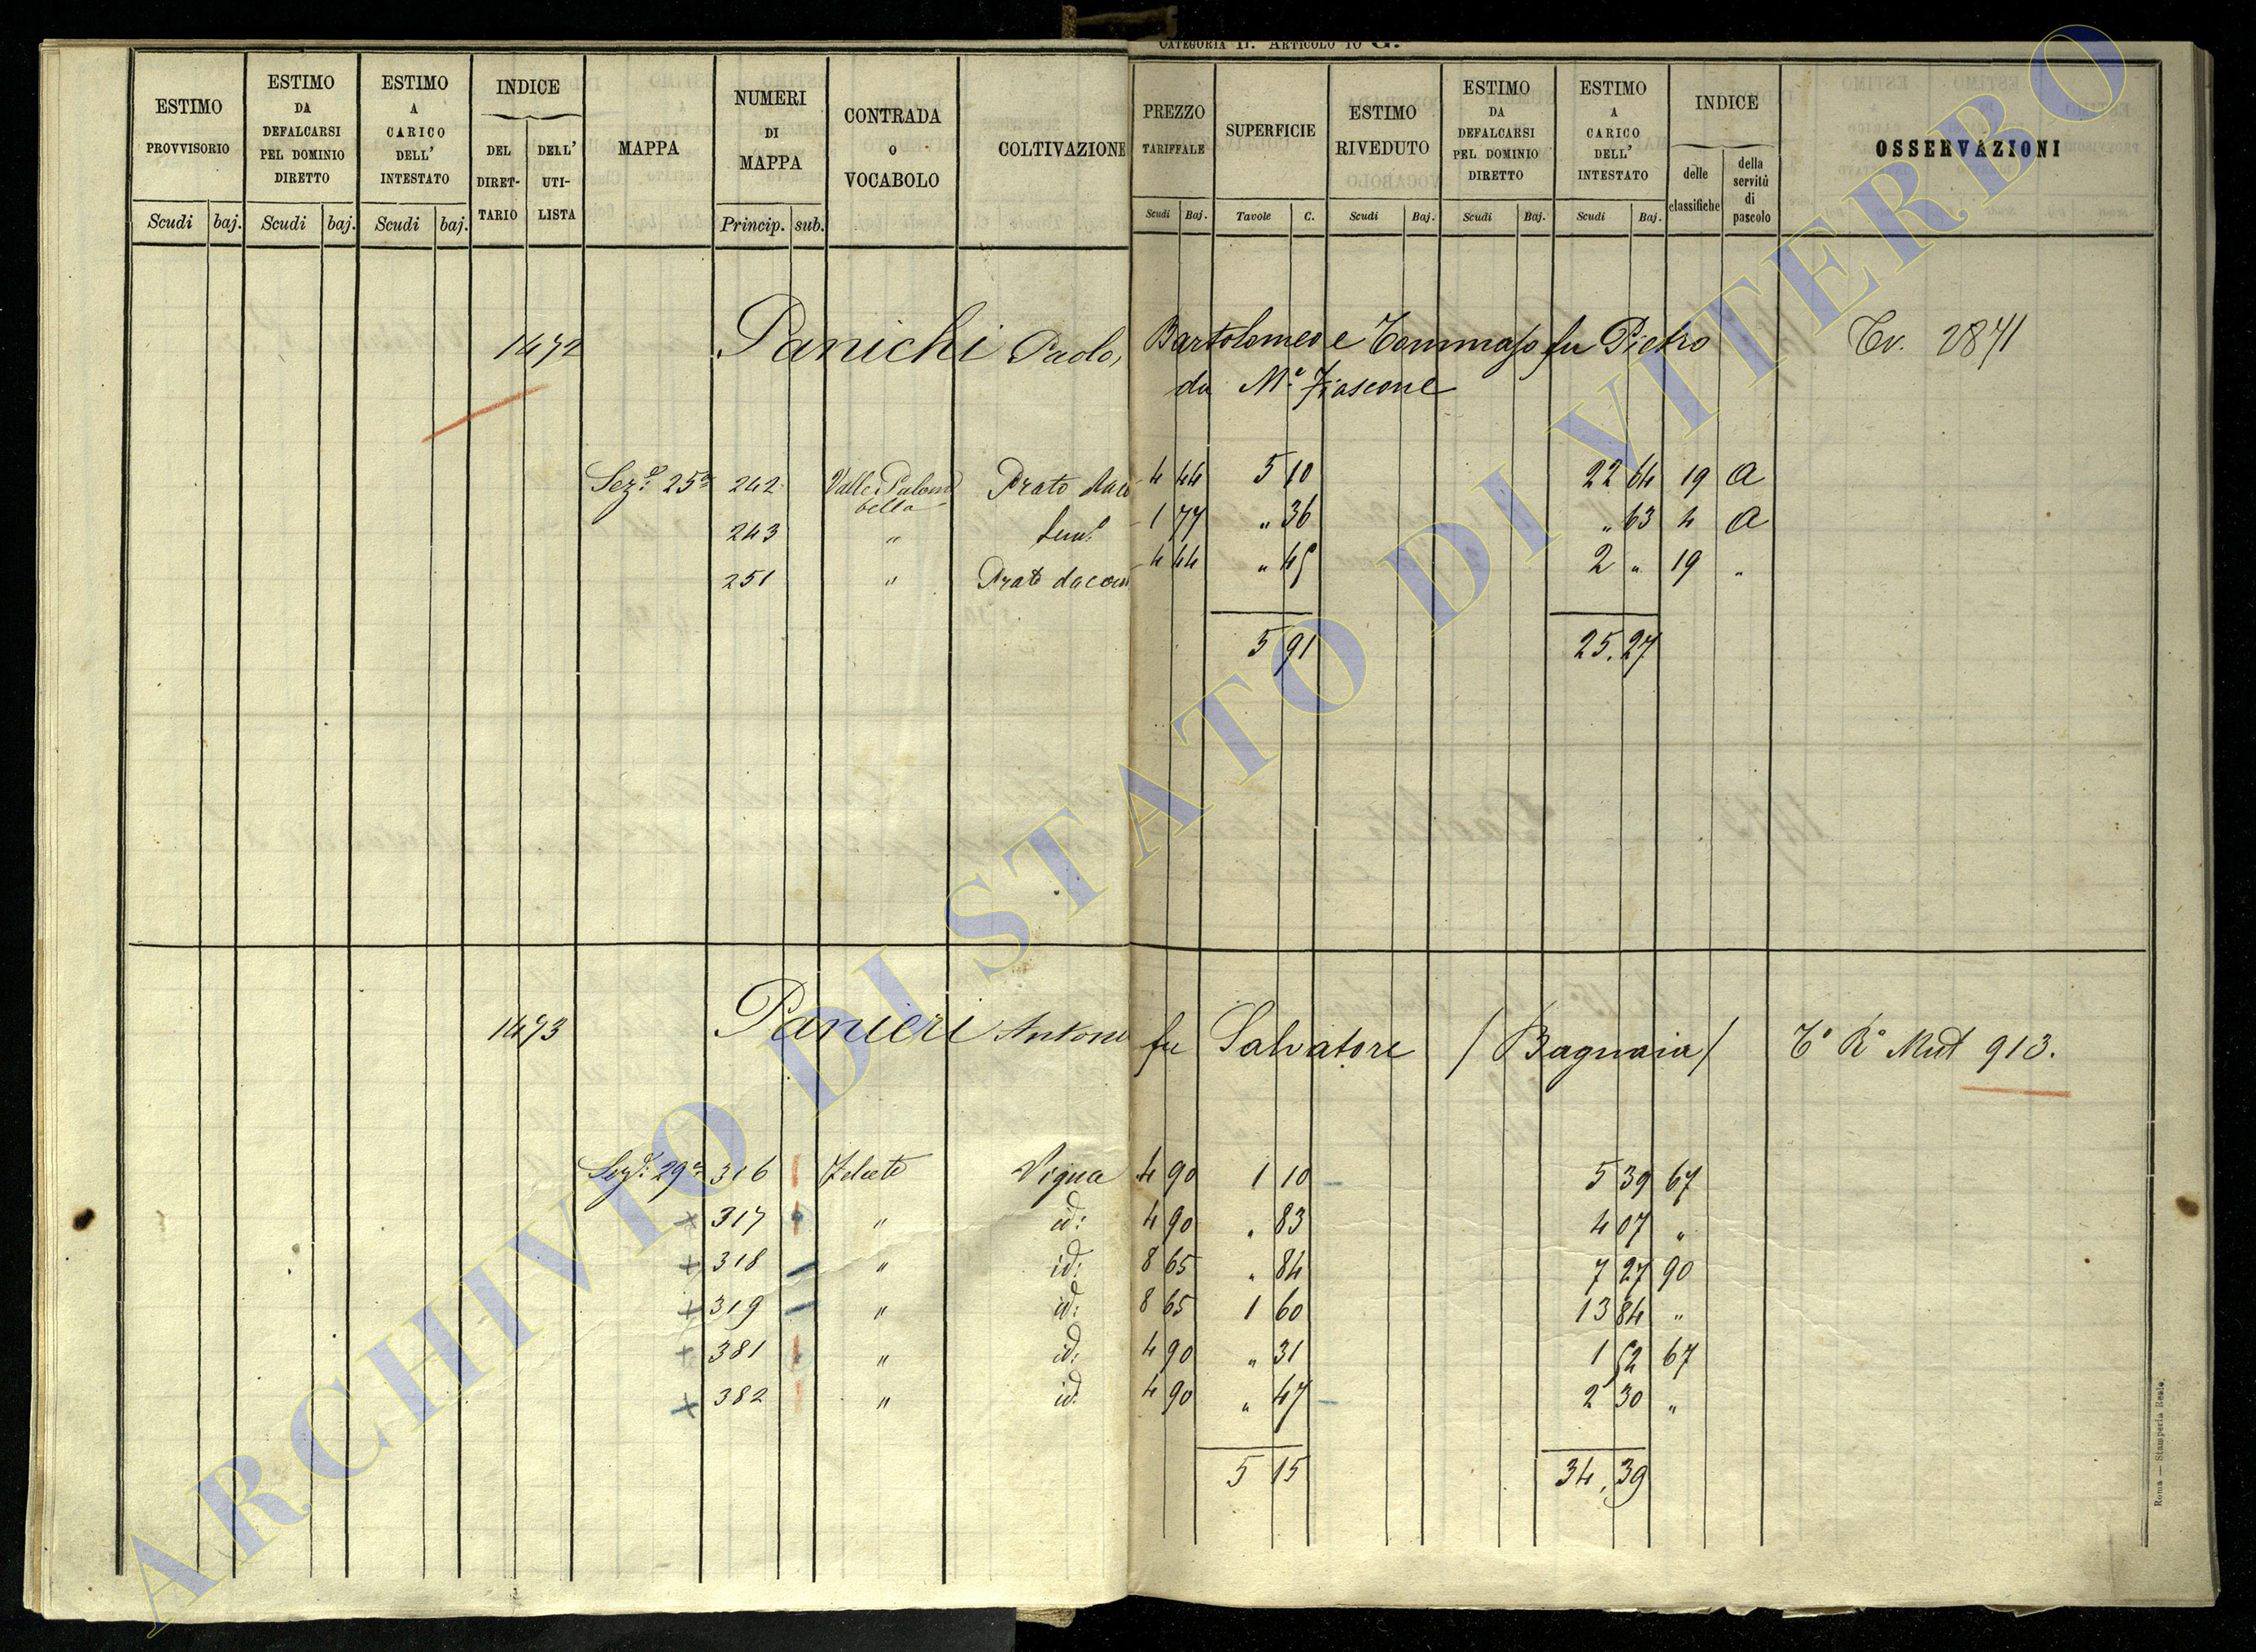 CATEGORIA II. ARTICOLO 10 G.
ESTIMO PROVVISORIO Scudi baj.
ESTIMO DA DEFALCARSI PEL DOMINIO DIRETTO Scudi baj.
ESTIMO A CARICO DELL' INTESTATO Scudi baj.
INDICE DEL DIRETTARIO DELL' UTILISTA
MAPPA
NUMERI DI MAPPA Princip. sub.
CONTRADA O VOCABOLO
COLTIVAZIONE
PREZZO TARIFFALE Scudi Baj.
SUPERFICIE Tavole C.
ESTIMO RIVEDUTO Scudi Baj.
ESTIMO DA DEFALCARSI PEL DOMINIO DIRETTO Scudi Baj.
ESTIMO A CARICO DELL' INTESTATO Scudi Baj.
INDICE delle classifiche della servitù di pascolo
OSSERVAZIONI
1472 Panichi Paolo, Bartolomeo e Tommaso fu Pietro Tv. 2871
da M.e Fiascone
Sez.e 25a 242 Valle Palombella Prato 4 44 5 10 22 64 19 a
243 " Sem.o 1 77 " 36 " 63 4 a
251 " Prato 4 44 " 45 2 " 19 "
5 91 25.27
1473 Panieri Antonio fu Salvatore / Bagnaia / To Ro Mut 913.
Sez.e 29a 316 Felceto Vigna 4 90 1 10 5 39 67
+ 317 " id: 4 90 " 83 4 07 "
+ 318 " id: 8 65 " 84 7 27 90
+ 319 " id: 8 65 1 60 13 84 "
+ 381 " id: 4 90 " 31 1 52 67
+ 382 " id. 4 90 " 47 2 30 "
5 15 34,39
Roma — Stamperia Reale.
ARCHIVIO DI STATO DI VITERBO